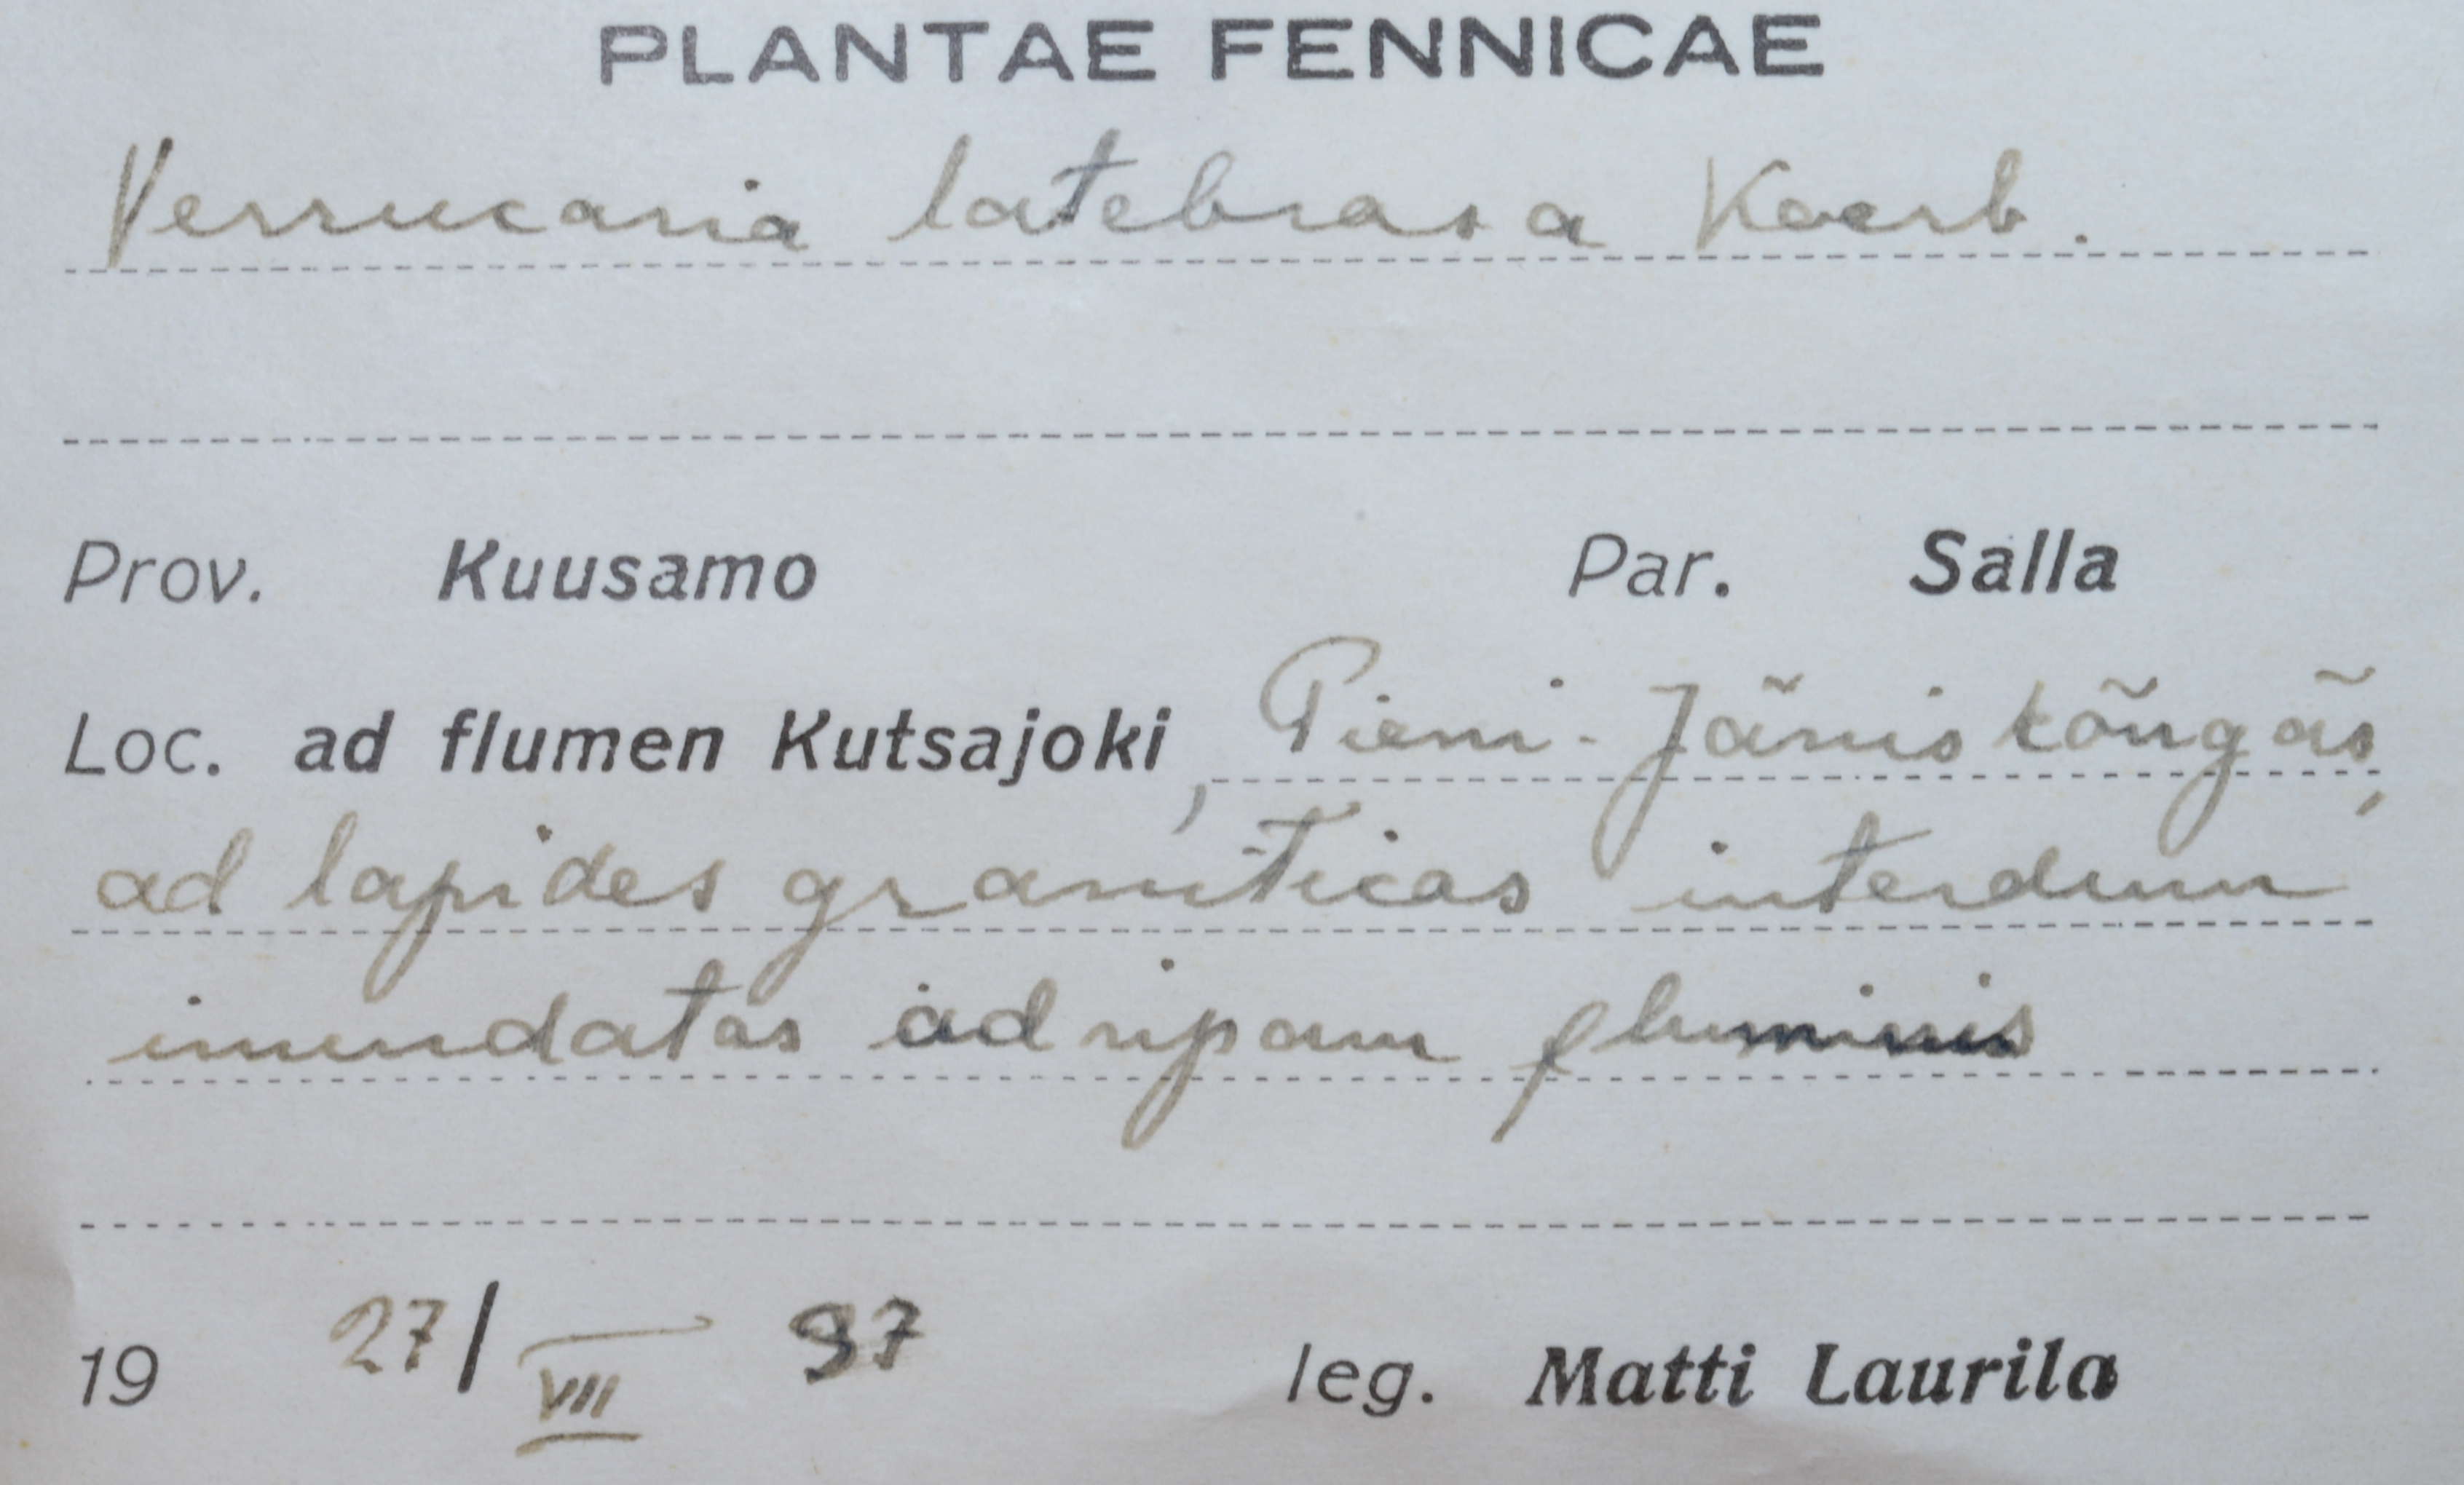 PLANTAE FENNICAE
Verrucaria latebrosa Koerb.
Prov. Kuusamo Par. Salla
Loc. ad flumen Kutsajoki, Pieni-Jänisköngäs,
ad lapides graniticas interdum
inundatas ad ripam fluminis
19 27/VII 37 leg. Matti Laurila